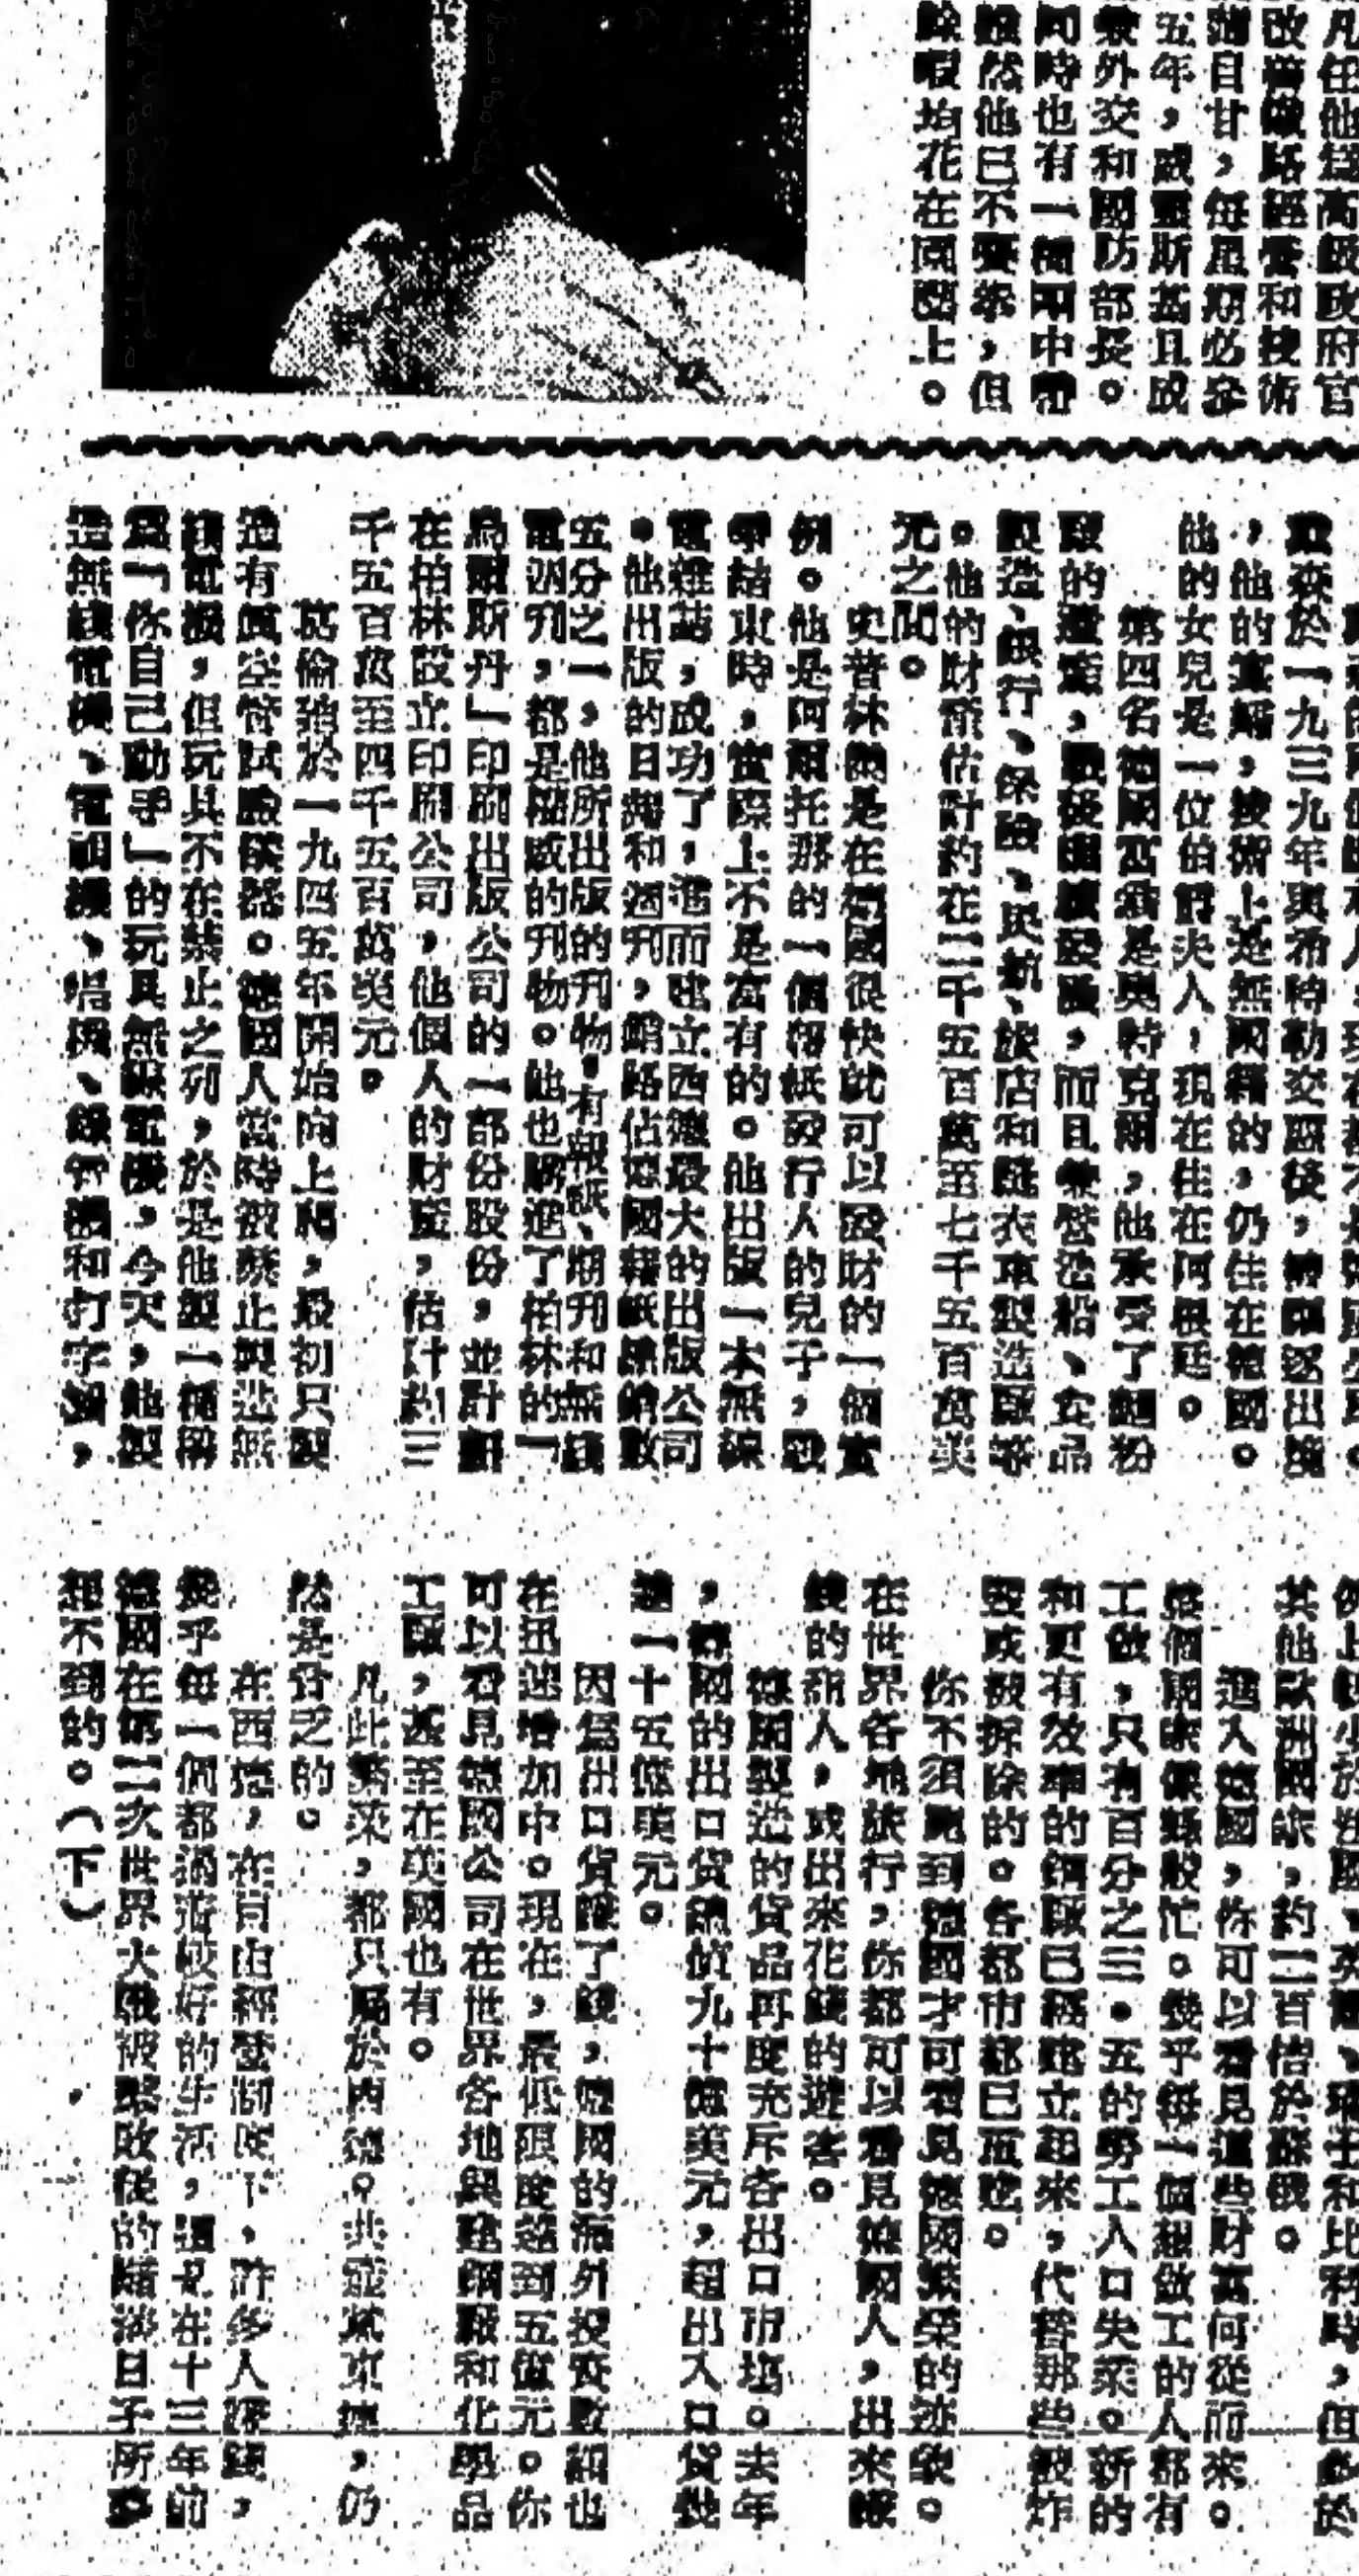 凡任他為高級政府官
改善鐵路經營和技術
泊自甘，每星期必參
五年，威靈斯基且成
業外交和國防部長。
同時也有一個
雖然他已不賽拳，但
餘暇均花在園藝上。
森於一九三九年與希特勒交惡後，被驅逐出境
，他的瞭解，技術上是無國籍的，仍住在德國。
他的女兒是一位伯爵夫人，現在住在阿根廷。
第四名德國富翁是奧特克爾，他承受了麵粉
廠的遺產，戰後繼續發展，而且兼營造船、食品
製造、銀行、保險、民航、旅店和成衣車製造廠等
。他的財產估計約在二千五百萬至七千五百萬美
元之間。
史普林格是在德國很快就可以發財的一個實
例。他是阿爾托那的一個報紙發行人的兒子，戰
爭結束時，實際上不是富有的。他出版一本無線
電雜誌，成功了，進而建立西德最大的出版公司
。他出版的日報和週刊，銷路佔德國報紙總銷數
五分之一，他所出版的刊物，有報紙、期刊和無線
電週刊，都是權威的刊物。他也購進了柏林的「
烏爾斯丹」印刷出版公司的一部份股份，並計劃
在柏林設立印刷公司，他個人的財產，估計約三
千五百萬至四千五百萬美元。
葛倫迪於一九四五年開始向上爬，最初只製
造有真空管試驗儀器。德國人當時被禁止製造無
線電機，但玩具不在禁止之列，於是他製一種稱
為「你自己動手」的玩具無線電機，今天，他製
造無線電機、電視機、唱機、錄音機和打字機，
其他歐洲國家，約二百倍於蘇俄。
進入德國，你可以看見這些財富何從而來。
這個國家像蜂般忙。幾乎每一個想做工的人都有
工做，只有百分之三・五的勞工人口失業。新的
和更有效率的鋼廠已經建立起來，代替那些被炸
毀或被拆除的。各都市都已重建。
你不須跑到德國才可看見德國繁榮的迹象。
在世界各地旅行，你都可以看見德國人，出來賺
錢的商人，或出來花錢的遊客。
德國製造的貨品再度充斥各出口市場。去年
，德國的出口貨總值九十億美元，超出入口貨幾
達一十五億美元。
因為出口貨賺了錢，德國的海外投資數額也
在迅速增加中。現在，最低限度達到五億元。你
可以看見德國公司在世界各地興建鋼廠和化學品
工廠，甚至在美國也有。
凡此繁榮，都只屬於西德。共產黨東德，仍
然是貧乏的。
在西德，在自由經營制度下，許多人賺錢，
幾乎每一個都過着較好的生活，這是在十三年前
德國在第二次世界大戰被擊敗後的黯淡日子所夢
想不到的。（下）